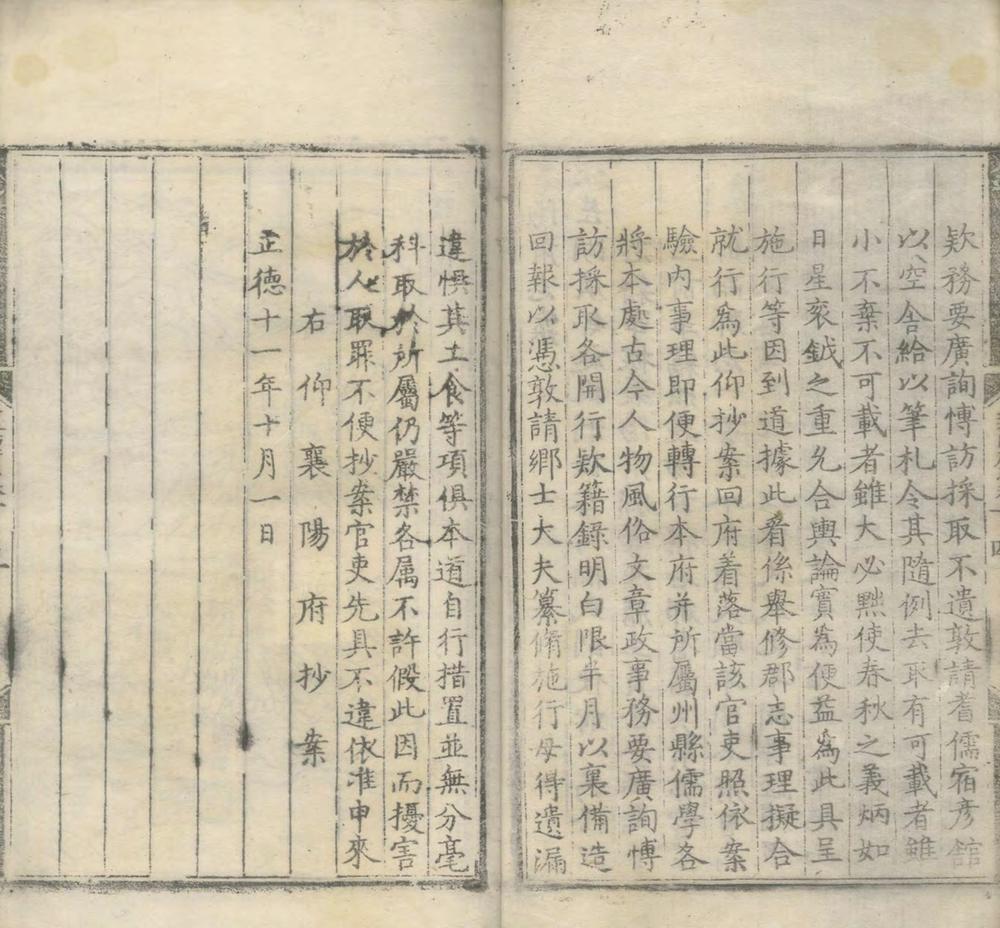 欵務要廣詢博訪採取不遺敦請耆儒宿彦舘
以空舍給以筆札令其隨例去取有可載者雖
小不棄不可載者雖大必黜使春秋之義炳如
日星衮鉞之重允合輿論實為便益為此具呈
施行等因到道據此看係舉修郡志事理擬合
就行為此仰抄案回府着落當該官吏照依案
驗内事理即便轉行本府并所屬州縣儒學各
將本處古今人物風俗文章政事務要廣詢博
訪採取各開行欵籍錄明白限半月以裏備造
回報以憑敦請鄉士大夫纂脩施行毋得遺漏
違悞其工食等項俱本道自行措置並無分毫
科取於所屬仍嚴禁各属不許假此因而擾害
於人取罪不便抄案官吏先具不違依准申來
右仰襄陽府抄案
正德十一年十月一日